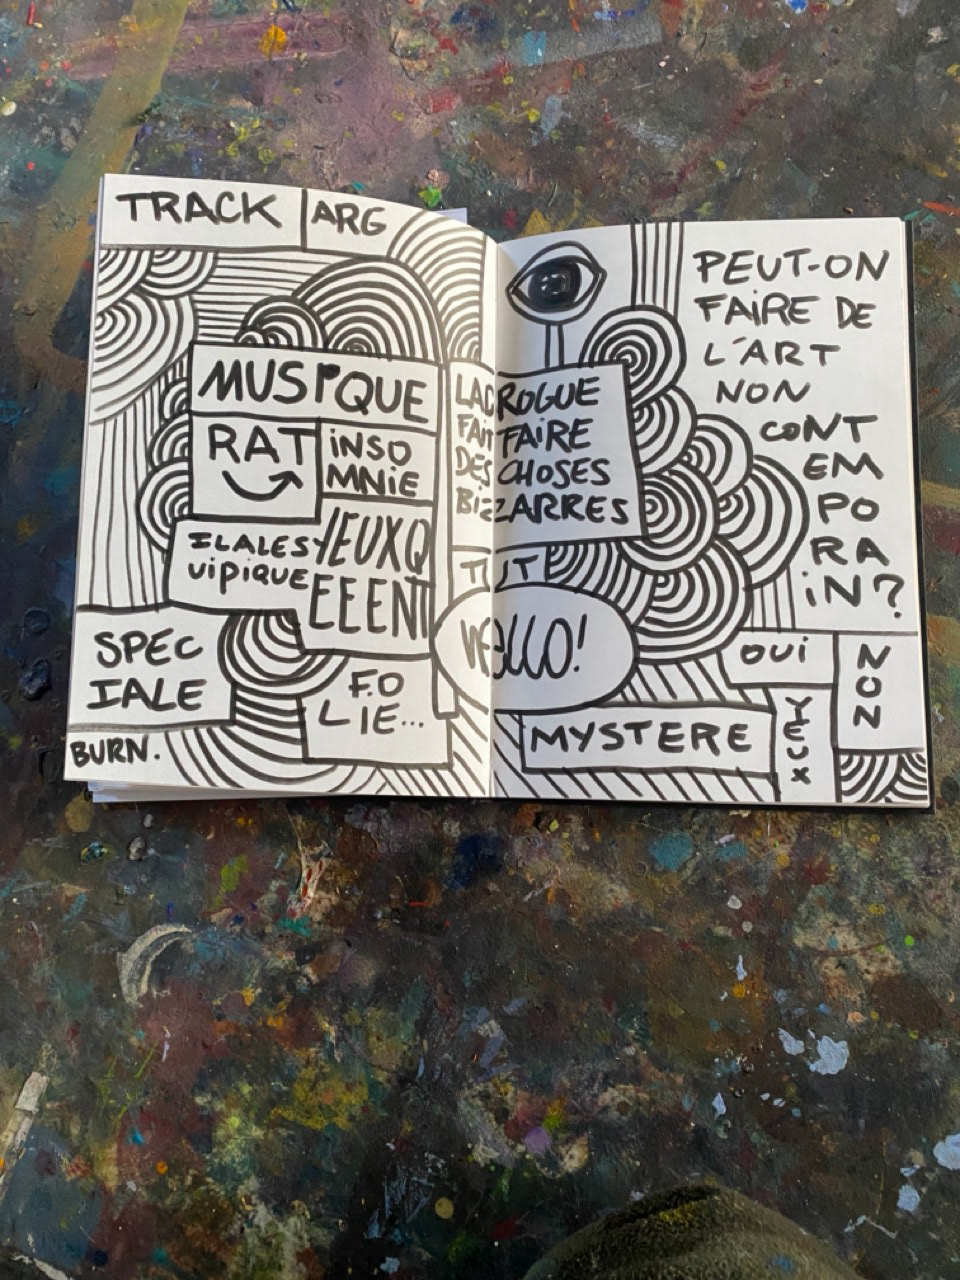 TRACK
ARG
MUSIQUE
RAT
INSO
MNIE
ILALES
VIPIQUE
YEUXQ
EEENT
SPEC
IALE
F.O
LIE...
BURN.
LADROGUE
FAIT FAIRE
DES CHOSES
BIZARRES
TUT
HELLO!
PEUT-ON
FAIRE DE
L'ART
NON
CONT
EM
PO
RA
IN?
OUI
NON
MYSTERE
YEUX